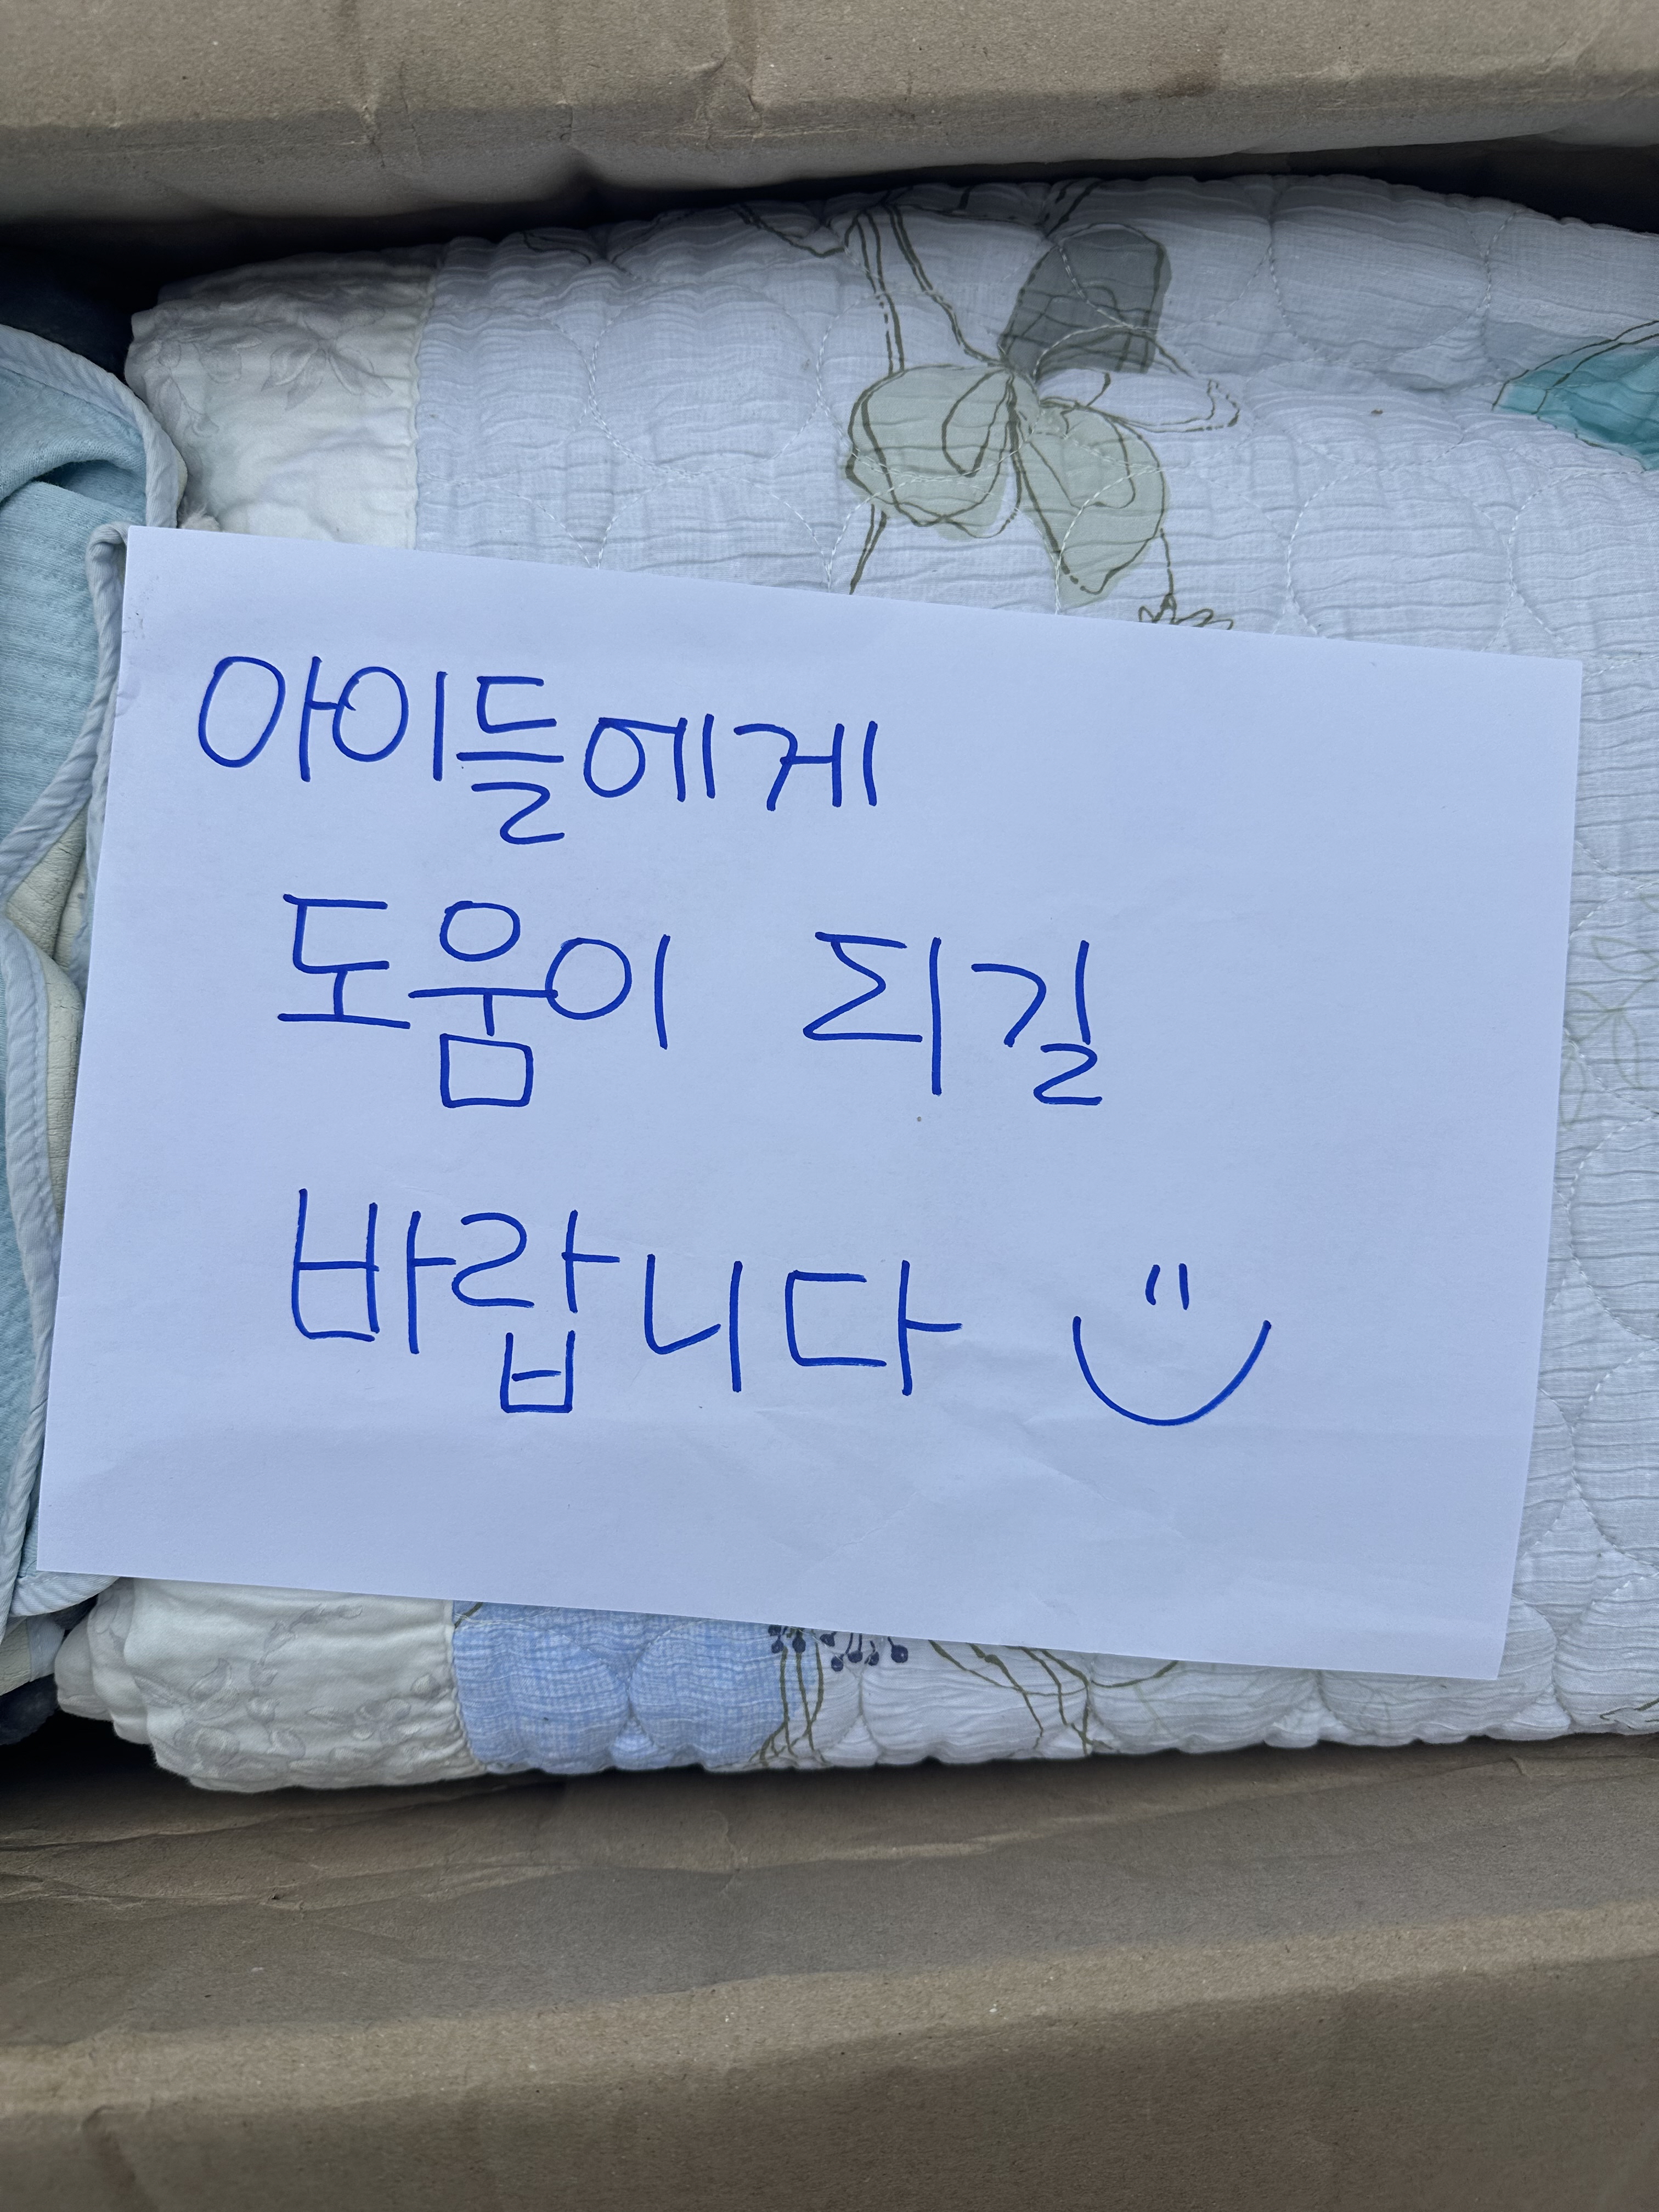 아이들에게
도움이 되길
바랍니다